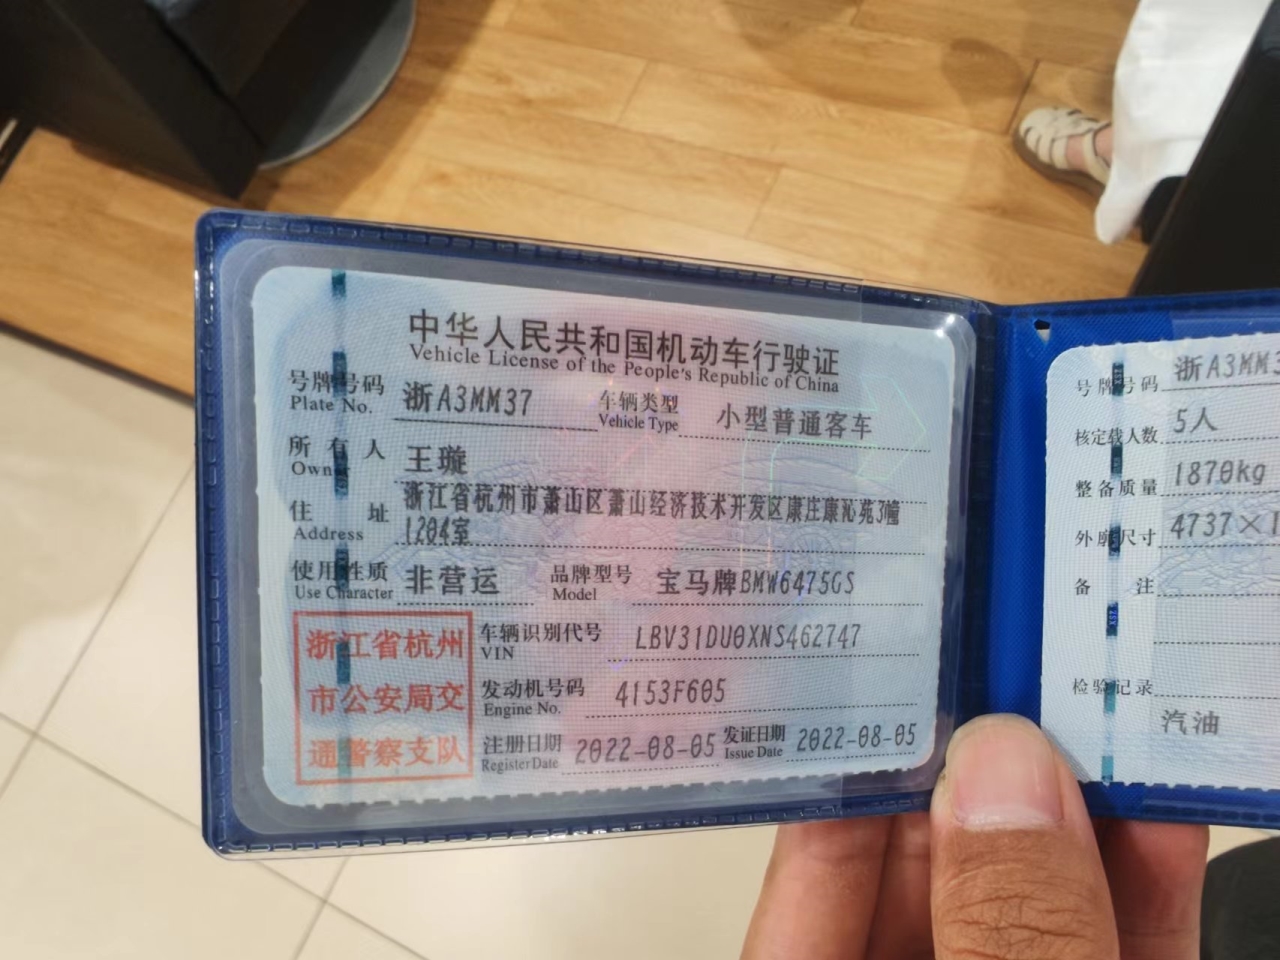 中华人民共和国机动车行驶证
Vehicle License of the People's Republic of China
号牌号码 浙A3MM37 车辆类型 小型普通客车
Plate No. Vehicle Type
所有人 王璇
Owner
住址 浙江省杭州市萧山区萧山经济技术开发区康庄康沁苑3幢
Address 1204室
使用性质 非营运 品牌型号 宝马牌BMW6475GS
Use Character Model
浙江省杭州
市公安局交
通警察支队
车辆识别代号 LBV31DU0XNS462747
VIN
发动机号码 4153F605
Engine No.
注册日期 2022-08-05 发证日期 2022-08-05
Register Date Issue Date
号牌号码 浙A3MM3
核定载人数 5人
整备质量 1870kg
外廓尺寸 4737×1
备注
检验记录
汽油